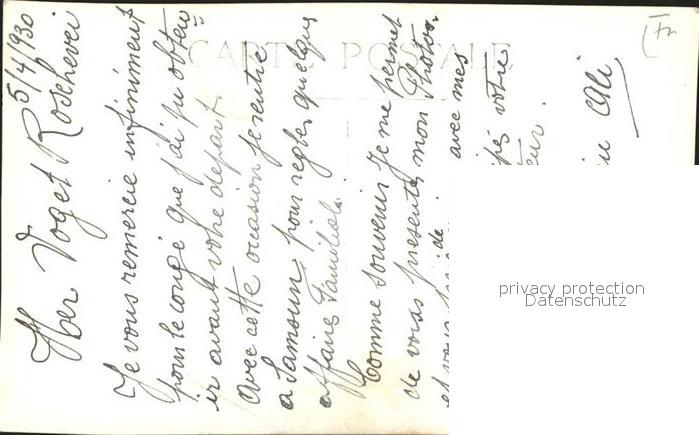 5/4/930
Herr Voget Roschevei
Je vous remercie infiniment
pour le congé que j'ai pu obten
ir avant votre départ.
Avec cette occasion je rentre
a Samsun pour regler quelque
affaire Familial.
Comme souvenir je me permet
de vous presenter mon Photo.
et vous
avec mes
votre
Ali
CARTE POSTALE
Fr
privacy protection
Datenschutz